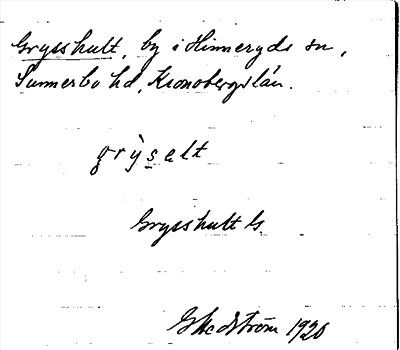 Grysshult, by i Hinneryds sn,
Sunnerbo hd, Kronobergs län.
grỳsalt
Grysshult G.
G Hedström 1920